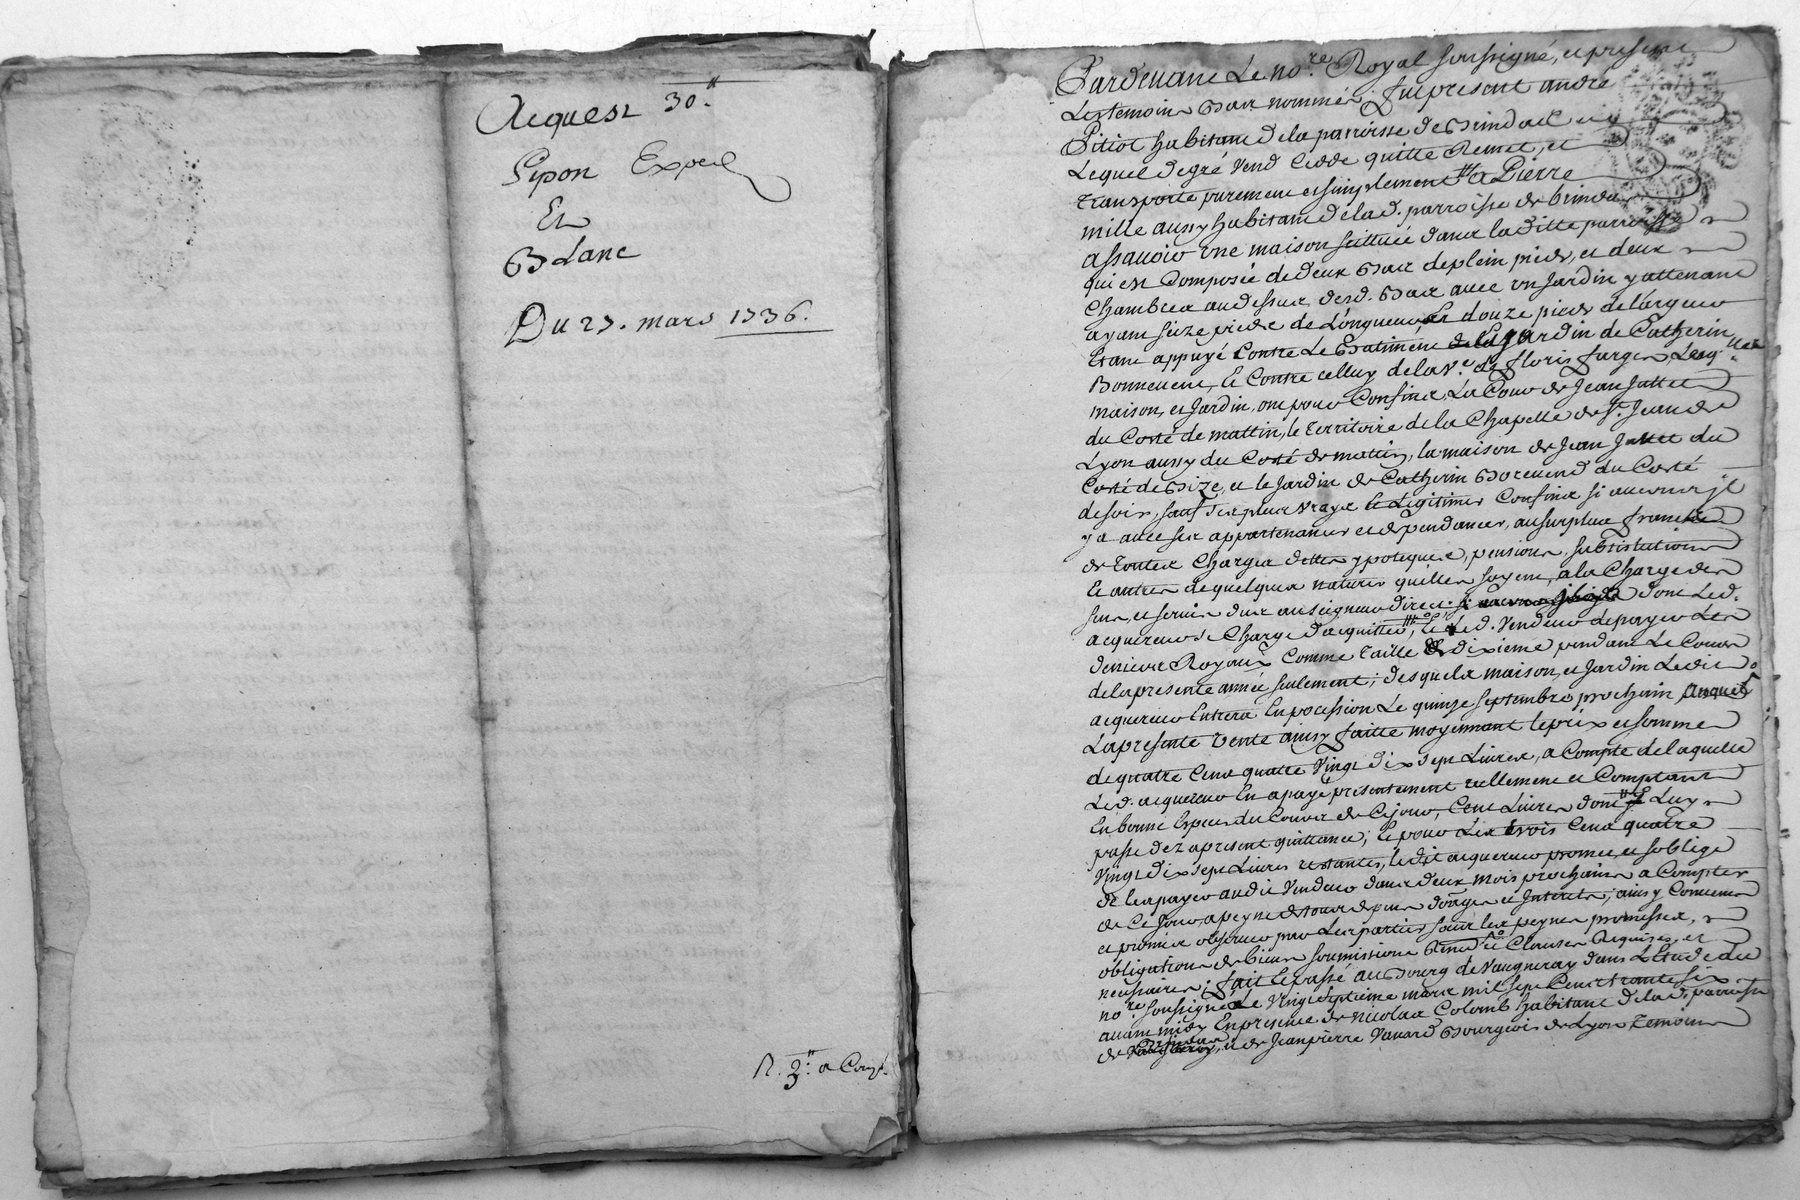 Acquest 30.tt
Pipon Exped
Et
Blanc
Du 27. mars 1736.
R. 3.tt a Compt.
Pardevant Le no.re Royal soussigné, et presents
Les temoins Bas nommés, fut present andré
Pitiot habitant de la parroisse de Brindas
Lequel de gré Vend Cedde quitte Remet, et
transporte purement et simplement a Pierre
mille aussy habitant de lad. parroisse de brindas
assavoir Une maison scittuée dans la ditte parroisse
qui est Composée de deux Bas de plein pied, et deux
Chambres au dessus desd. Bas avec un Jardin y attenant
ayant seize pieds de Longueur, et douze pieds de largeur
Etant appuyé Contre Le Batiment Jardin de Catherin
Bonnevent, et Contre celluy de la v.e de floris farges, Lesq.lles
maison, et Jardin, ont pour Confins, La Cour de Jean Juttet
du Costé de mattin, le territoire de la Chapelle de St. Jean de
Lyon aussy du Costé de matin, la maison de Jean Juttet du
Costé de Bize, et le Jardin de Catherin Bonnevend du Costé
de soir, sauf ses plus vrays et Legitimes Confins si aucuns jl
y a avec ses appartenances et dependances, au surplus franche
de toutes Charges dettes ypoteques, pensions, substitutions
Et autres de quelques natures quelles soyent, a la Charge des
sens, et servis dus au seigneur direct dont Led.
acquereur se Charge d'acquitter, et Led. Vendeur de payer Les
deniers Royaux Comme taille dixieme pendant Le Cours
de la presente année seulement; desquels maison, et Jardin Ledit
acquereur Entrera En pocession Le quinze septembre prochain
La presente vente ainsy faitte moyennant le prix et somme
de quatre Cent quatre Vingt dix sept Livres, a Compte de laquelle
Led. acquereur En a payé presentement reellement et Comptant
En bonne Espece du Cours de Cejour, Cent Livres dont Luy
passe dez apresent quittance; Et pour Les trois Cent quatre
Vingt dix sept Livres restantes, ledit acquereur promet, et s'oblige
de les payer audit Vendeur dans deux mois prochains a Compter
de Ce Jour, a peyne de tous depens domages et Interets; ainsy Convenu
et promis observer par Les parties sous les peynes promesses,
obligations de biens soumissions Clauses Requises, et
necessaires; fait et passé au Bourg de Vaugneray dans L'Etude du
no.re soussigné Le Vingt septieme mars mil sept Cent trante six
avant midy En presence de Nicolas Colomb habitant de lad. parroisse
de et de Jean pierre Vanard Bourgeois de Lyon temoins